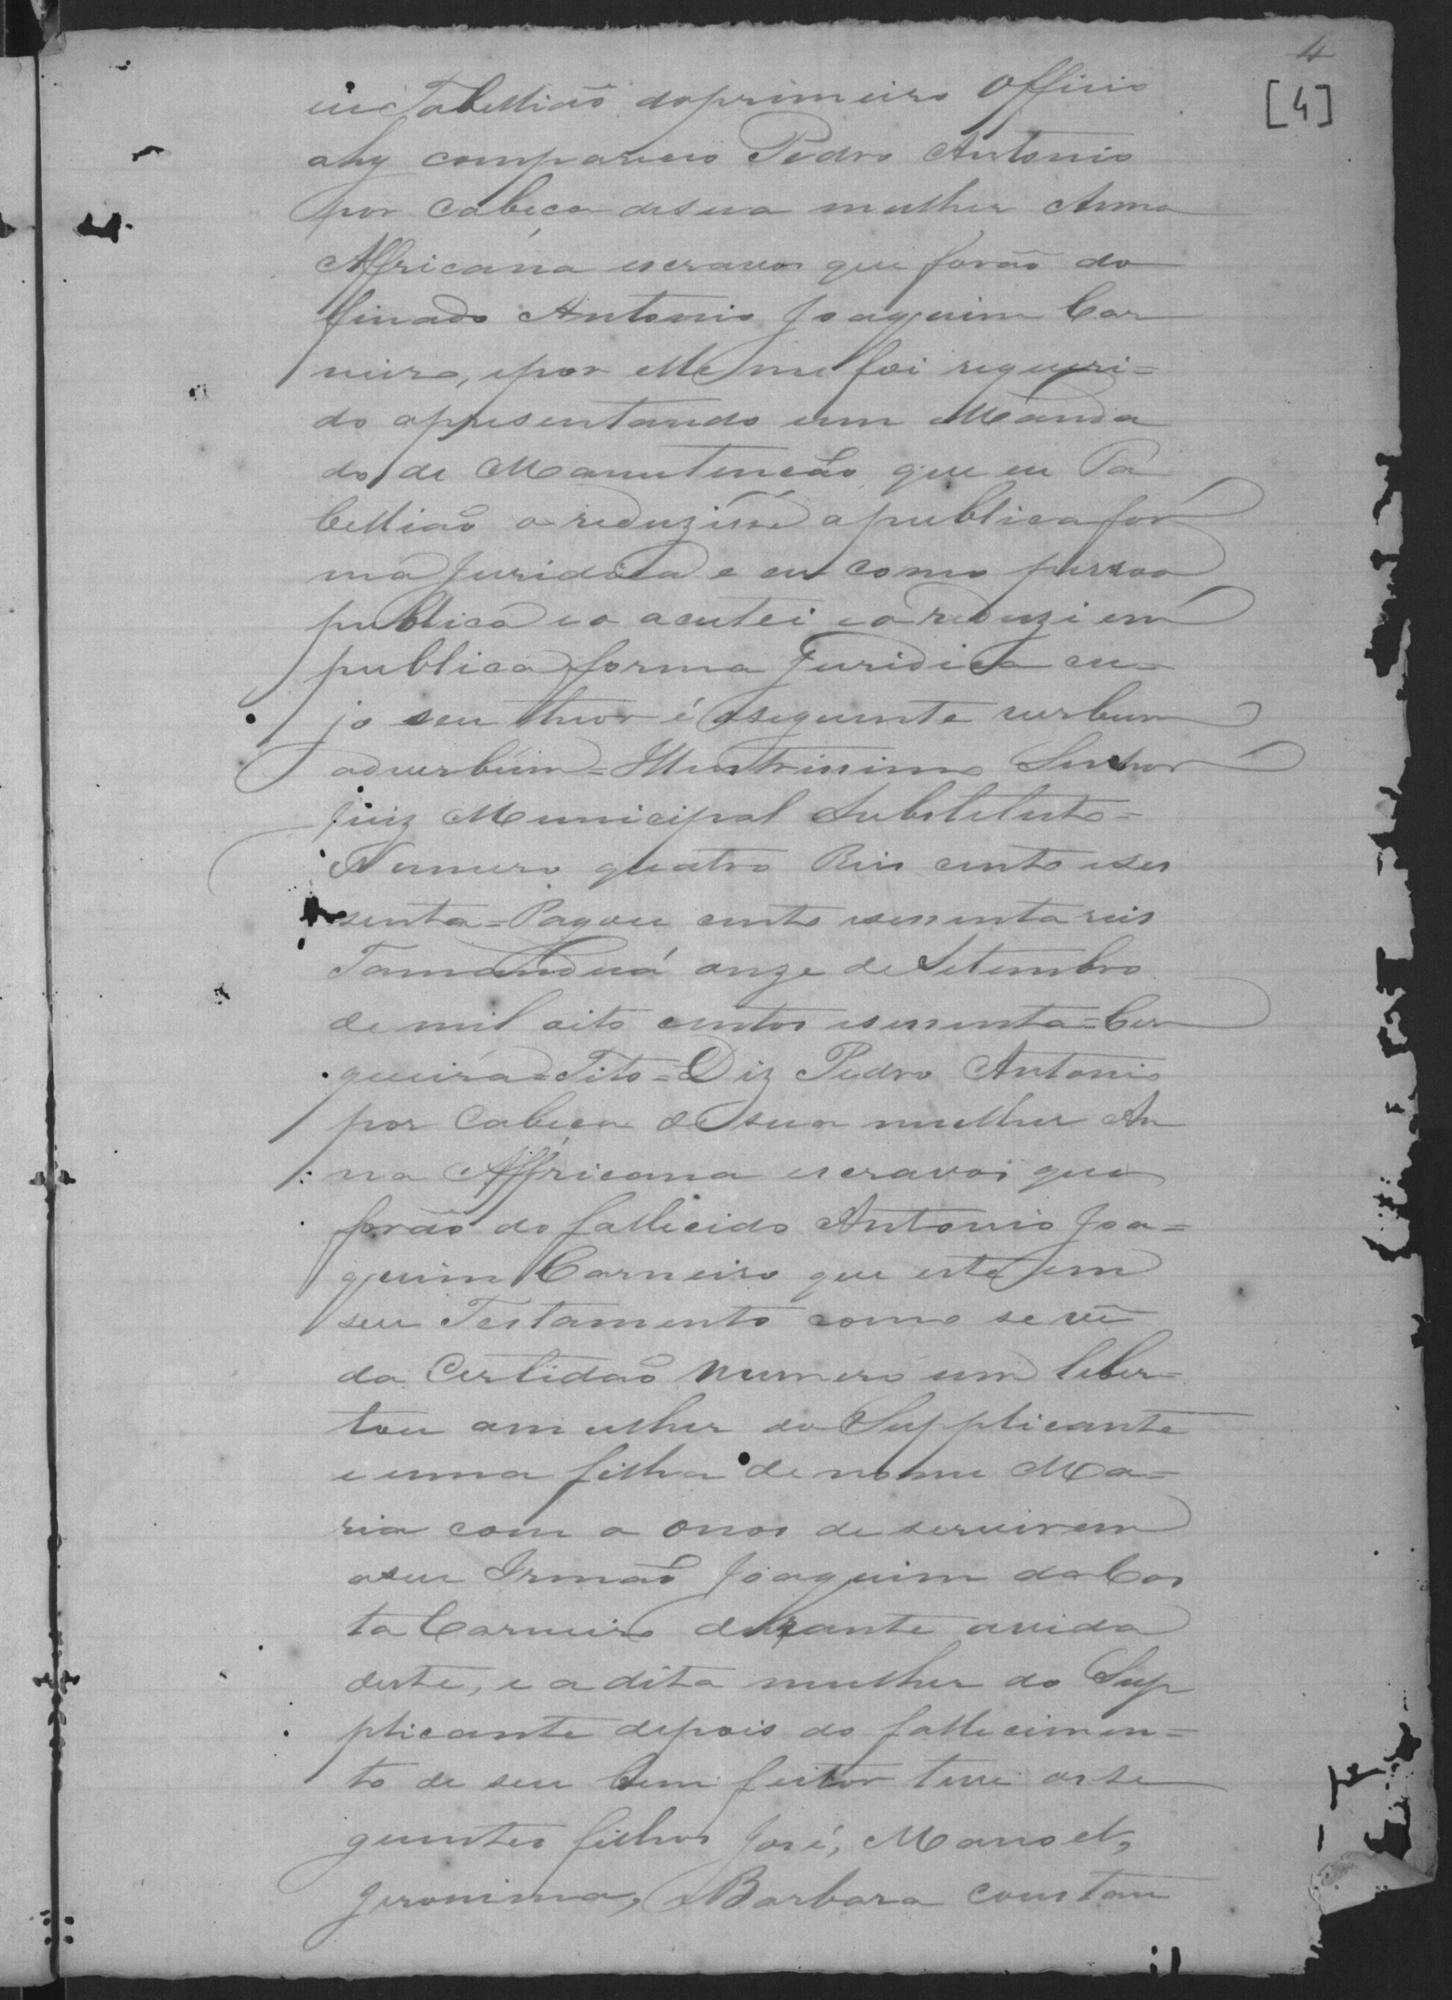 4
[4]
eu Tabellião do primeiro Officio
ahy compareceo Pedro Antonio
por Cabeça de sua mulher Anna
Affricana escravos que forão do
finado Antonio Joaquim Car
neiro, e por elle me foi requeri=
do apresentando um Manda
do de Manutenção que eu Ta
bellião o reduzisse a publica for
ma Juridica e eu como pessoa
publica o aceitei e o reduzi em
publica forma Juridica cu=
jo seu theor é o seguinte verbum
adverbum = Illustrissimo Senhor
Juiz Municipal Substituto =
Numero quatro Reis cento eses
senta = Pagou cento esessenta reis
Tamanduá onze de Setembro
de mil oito centos esessenta = Cer
queira = Tito = Diz Pedro Antonio
por Cabeça de sua mulher An
na Affricana escravos que
forão do fallecido Antonio Joa=
quim Carneiro que este em
seu Testamento como se vê
da Certidão numero um liber=
tou a mulher do Supplicante
e uma filha de nome Ma=
ria com o onos de servirem
a seu Irmão Joaquim da Cos
ta Carneiro durante a vida
deste, e a dita mulher do Sup
plicante depois do fallecimen=
to de seu bem feitor teve os se
guintes filhos José, Manoel,
Jeronima, Barbara constan